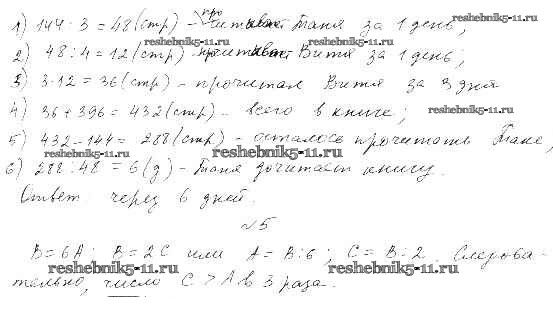 1) 144 : 3 = 48 (стр) – прочитывает Таня за 1 день;
reshebnik5-11.ru
2) 48 : 4 = 12 (стр) – прочитывает Витя за 1 день;
reshebnik5-11.ru reshebnik5-11.ru
3) 3·12 = 36 (стр) – прочитал Витя за 3 дня
4) 36 + 396 = 432 (стр) – всего в книге;
reshebnik5-11.ru
5) 432 – 144 = 288 (стр) – осталось прочитать Тане;
reshebnik5-11.ru
6) 288 : 48 = 6 (д) – Таня дочитает книгу.
reshebnik5-11.ru
Ответ: через 6 дней.
№5
B = 6A; B = 2C или A = B : 6; C = B : 2. Следова-
reshebnik5-11.ru reshebnik5-11.ru
тельно, число C > A в 3 раза.